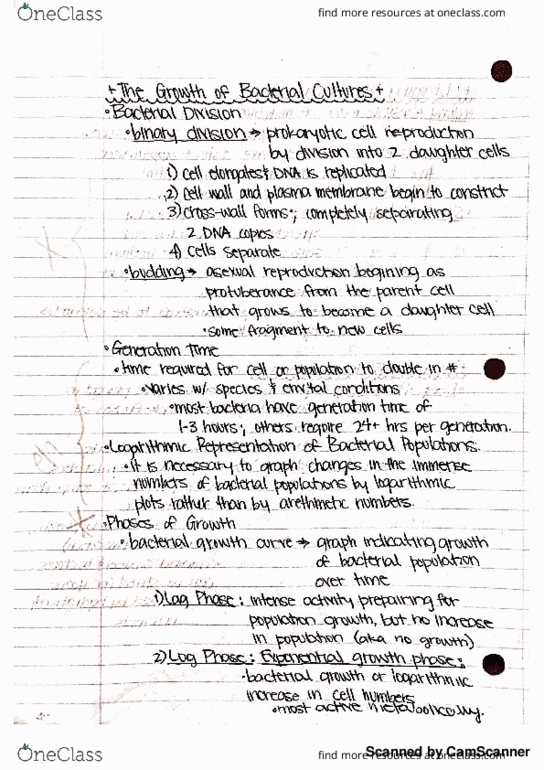 OneClass
find more resources at oneclass.com
+The Growth of Bacterial Cultures+
•Bacterial Division
•binary division → prokaryotic cell reproduction
by division into 2 daughter cells
1) Cell elongates & DNA is replicated
2) Cell wall and plasma membrane begin to constrict
3) cross-wall forms; completely separating
2 DNA copies
4) Cells separate
•budding → asexual reproduction begining as
protuberance from the parent cell
that grows to become a daughter cell
•some fragment to new cells
•Generation Time
•time required for cell or population to double in #
•varies w/ species & envital conditions
•most bacteria have generation time of
1-3 hours; others require 24+ hrs per generation.
•Logarithmic Representation of Bacterial Populations.
•it is necessary to graph changes in the immense
numbers of bacterial populations by logarithmic
plots rather than by arethmetic numbers.
•Phases of Growth
•bacterial growth curve → graph indicating growth
of bacterial population
over time
1) Lag Phase: intense activity preparing for
population growth, but no increase
in population (aka no growth)
2) Log Phase: Exponential growth phase;
•bacterial growth or logarithmic
increase in cell numbers
•most active metabolically.
OneClass
find more resources at oneclass.com
Scanned by CamScanner